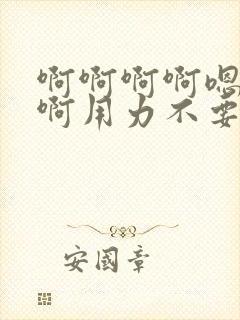 啊啊啊啊嗯
啊用力不要
安國章